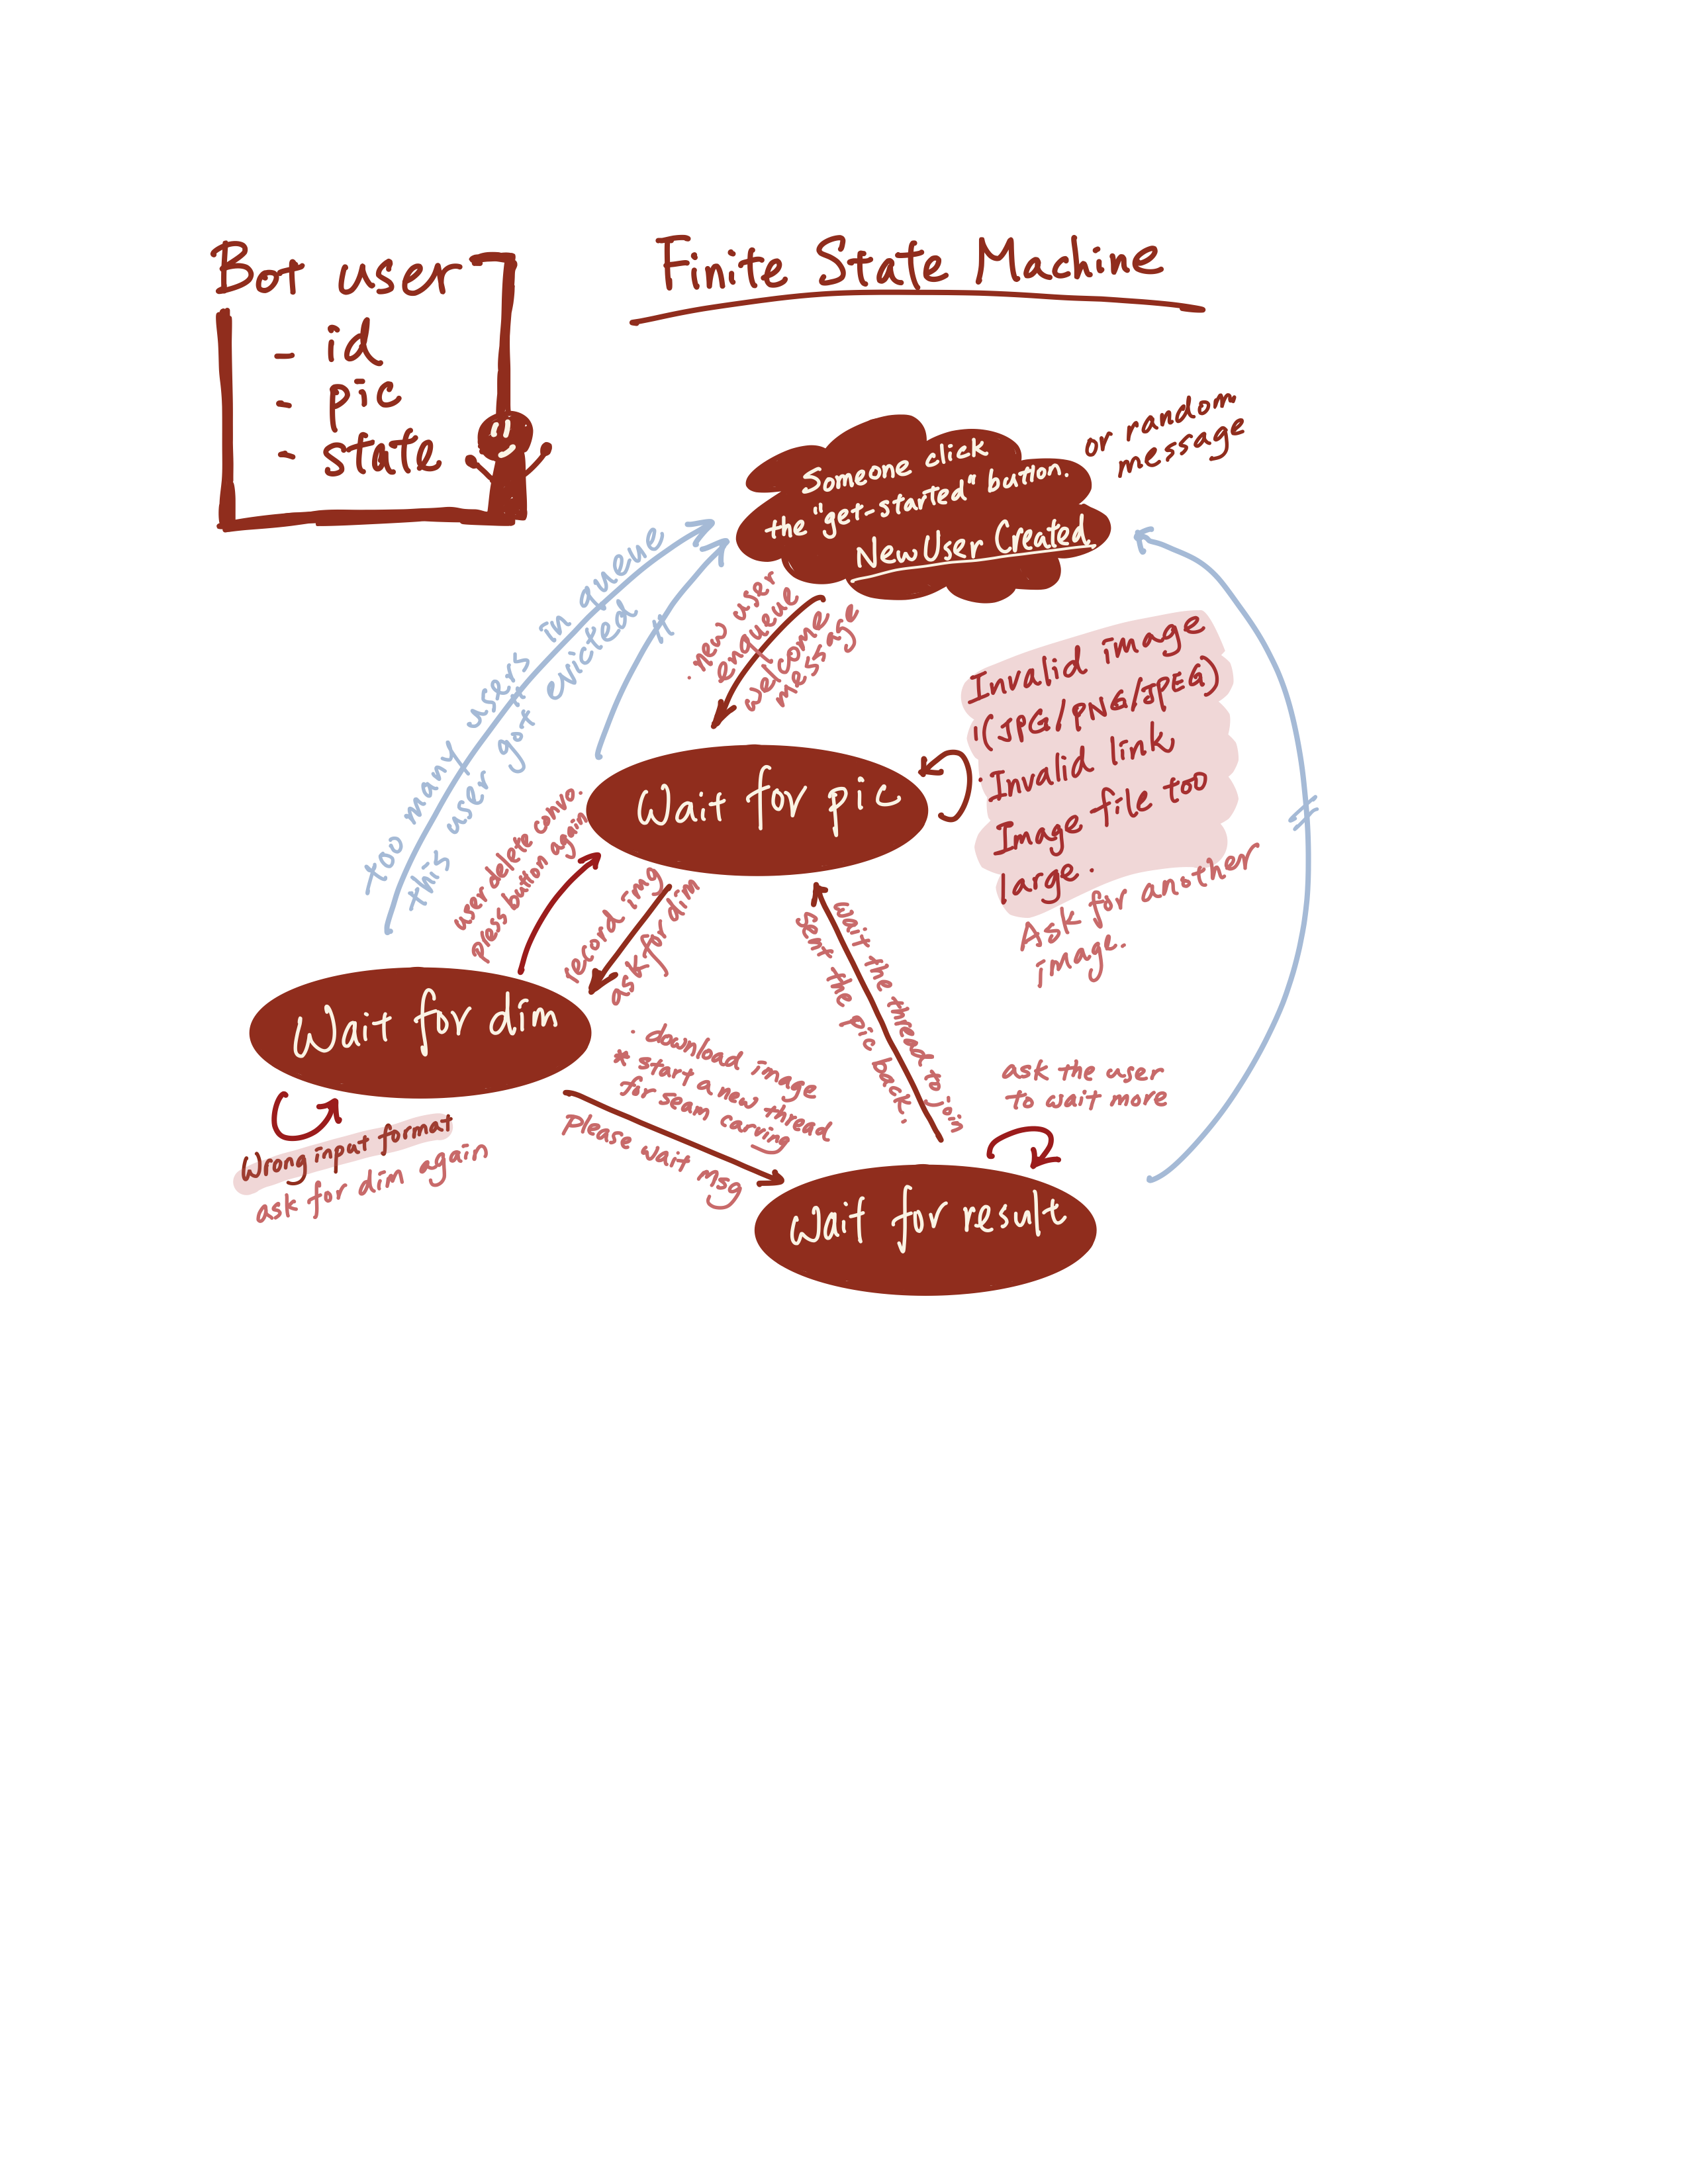 Bot user
- id
- pic
- state
Finite State Machine
Someone click
the "get-started" button.
New User Created
or random
message
too many users in queue
this user got evicted
· new user
enqueue
welcome
message
Wait for pic
Invalid image
·(JPG/PNG/JPEG)
· Invalid link
Image file too
large.
Ask for another
image.
user delete convo.
press button again
record img
ask for dim
wait the thread to join
sent the pic back.
Wait for dim
Wrong input format
ask for dim again
· download image
* start a new thread
for seam carving
Please wait msg
ask the user
to wait more
Wait for result